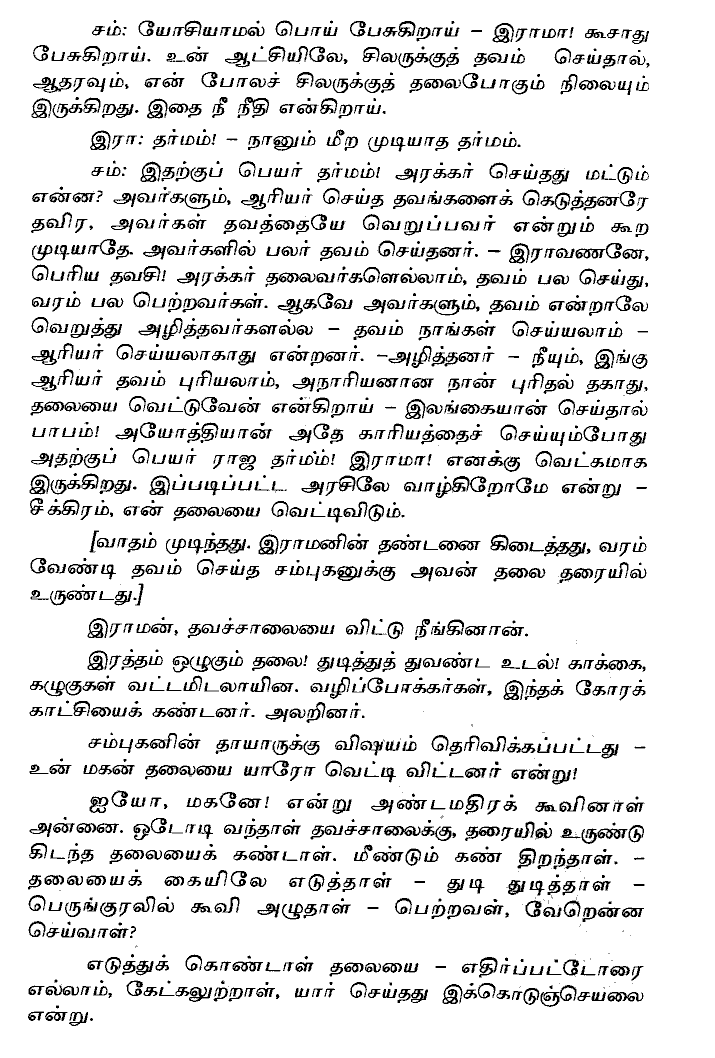 சம்: யோசியாமல் பொய் பேசுகிறாய் – இராமா! கூசாது
பேசுகிறாய். உன் ஆட்சியிலே, சிலருக்குத் தவம் செய்தால்,
ஆதரவும், என் போலச் சிலருக்குத் தலைபோகும் நிலையும்
இருக்கிறது. இதை நீ நீதி என்கிறாய்.
இரா: தர்மம்! – நானும் மீற முடியாத தர்மம்.
சம்: இதற்குப் பெயர் தர்மம்! அரக்கர் செய்தது மட்டும்
என்ன? அவர்களும், ஆரியர் செய்த தவங்களைக் கெடுத்தனரே
தவிர, அவர்கள் தவத்தையே வெறுப்பவர் என்றும் கூற
முடியாதே. அவர்களில் பலர் தவம் செய்தனர். – இராவணனே,
பெரிய தவசி! அரக்கர் தலைவர்களெல்லாம், தவம் பல செய்து,
வரம் பல பெற்றவர்கள். ஆகவே அவர்களும், தவம் என்றாலே
வெறுத்து அழித்தவர்களல்ல – தவம் நாங்கள் செய்யலாம் –
ஆரியர் செய்யலாகாது என்றனர். –அழித்தனர் – நீயும், இங்கு
ஆரியர் தவம் புரியலாம், அநாரியனான நான் புரிதல் தகாது,
தலையை வெட்டுவேன் என்கிறாய் – இலங்கையான் செய்தால்
பாபம்! அயோத்தியான் அதே காரியத்தைச் செய்யும்போது
அதற்குப் பெயர் ராஜ தர்மம்! இராமா! எனக்கு வெட்கமாக
இருக்கிறது. இப்படிப்பட்ட அரசிலே வாழ்கிறோமே என்று –
சீக்கிரம், என் தலையை வெட்டிவிடும்.
[வாதம் முடிந்தது. இராமனின் தண்டனை கிடைத்தது, வரம்
வேண்டி தவம் செய்த சம்புகனுக்கு அவன் தலை தரையில்
உருண்டது.]
இராமன், தவச்சாலையை விட்டு நீங்கினான்.
இரத்தம் ஒழுகும் தலை! துடித்துத் துவண்ட உடல்! காக்கை,
கழுகுகள் வட்டமிடலாயின. வழிப்போக்கர்கள், இந்தக் கோரக்
காட்சியைக் கண்டனர். அலறினர்.
சம்புகனின் தாயாருக்கு விஷயம் தெரிவிக்கப்பட்டது –
உன் மகன் தலையை யாரோ வெட்டி விட்டனர் என்று!
ஐயோ, மகனே! என்று அண்டமதிரக் கூவினாள்
அன்னை. ஓடோடி வந்தாள் தவச்சாலைக்கு, தரையில் உருண்டு
கிடந்த தலையைக் கண்டாள். மீண்டும் கண் திறந்தாள். –
தலையைக் கையிலே எடுத்தாள் – துடி துடித்தாள் –
பெருங்குரலில் கூவி அழுதாள் – பெற்றவள், வேறென்ன
செய்வாள்?
எடுத்துக் கொண்டாள் தலையை – எதிர்ப்பட்டோரை
எல்லாம், கேட்கலுற்றாள், யார் செய்தது இக்கொடுஞ்செயலை
என்று.